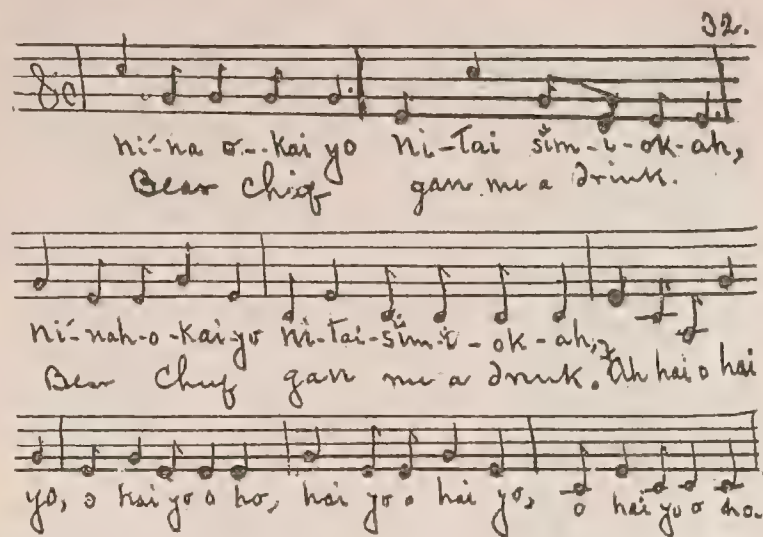 32.
ni-na o-kai yo ni-tai šim-i-ok-ah,
Bear chief gave me a drink.
ni-nah-o-kai-yo ni-tai-sim-i-ok-ah,
Bear Chief gave me a drink. Ah hai o hai
yo, o hai yo o ho, hai yo o hai yo, o hai yo o ho.